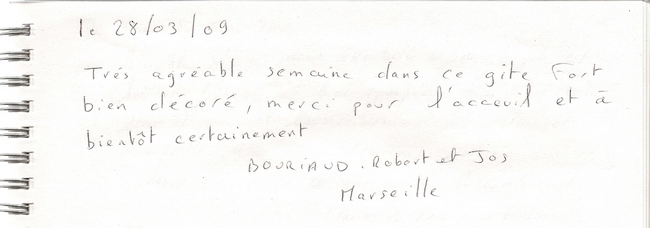 le 28/03/09
Trés agréable semaine dans ce gîte Fort
bien décoré, merci pour l'acceuil et à
bientôt certainement
BOURIAUD. Robert et Jos
Marseille